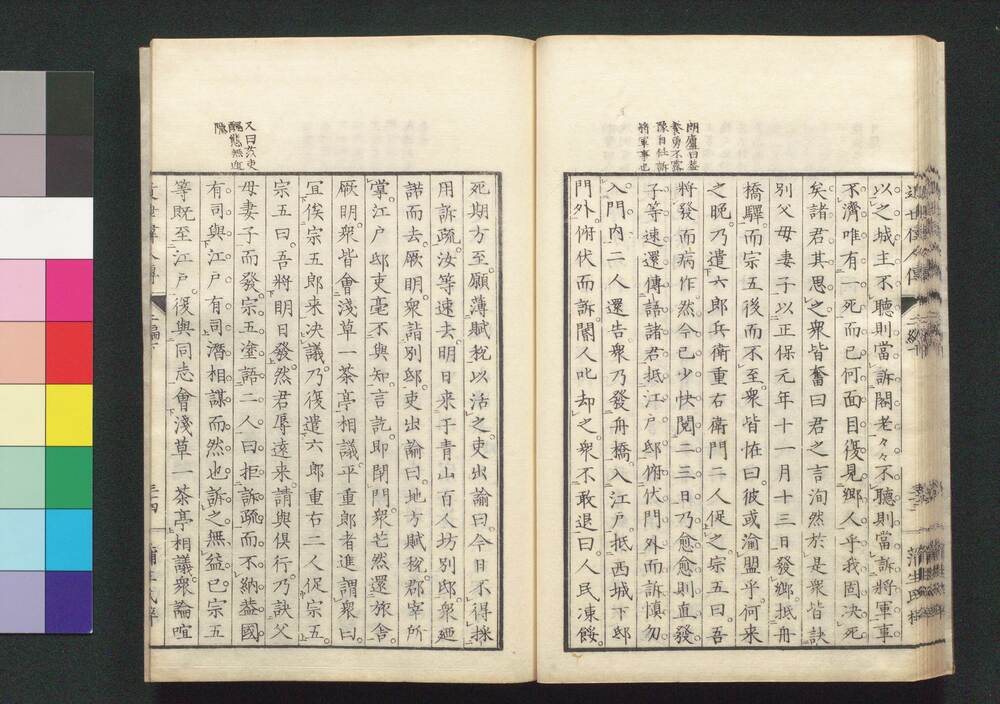 朗廬曰益
養勇不露
将軍事也
以之城主不聽則當訴閣老々々不聽則當訴將軍事
不濟唯有一死而已何面目復見郷人乎我固决死
矣諸君其思之衆皆奮曰君之言洵然於是衆皆訣
別父母妻子以正保元年十一月十三日發郷抵舟
橋驛而宗五後而不至衆皆恠曰彼或渝盟乎何来
之晩乃遣六郎兵衛重右衛門二人促之宗五曰吾
將發而病作然今已少快閲二三日乃愈愈則直發
子等速還傳語諸君抵江戸邸俯伏門外而訴愼勿
入門内二人還告衆乃發舟橋入江戸抵西城下邸
門外俯伏而訴閽人叱却之衆不敢退曰人民凍餒
又曰茨吏
醜態無遁
隠
死期方至願薄賦税以活之吏出諭曰今日不得採
用訴疏汝等速去明日来于青山百人坊别邸衆廼
諾而去厥明衆詣别邸吏出諭曰地方賦税郡宰所
掌江戸邸吏毫不與知言訖即閉門衆芒然還旅舎
厥明衆皆會淺草一茶亭相議平重郎者進謂衆曰
宜俟宗五郎来决議乃復遣六郎重右二人促宗五
宗五曰吾將明日發然君辱遠来請與倶行乃訣父
母妻子而發宗五塗語二人曰拒訴疏而不納葢國
有司與江戸有司潛相謀而然也訴之無益已宗五
等既至江戸復與同志會淺草一茶亭相議衆論喧
三十四